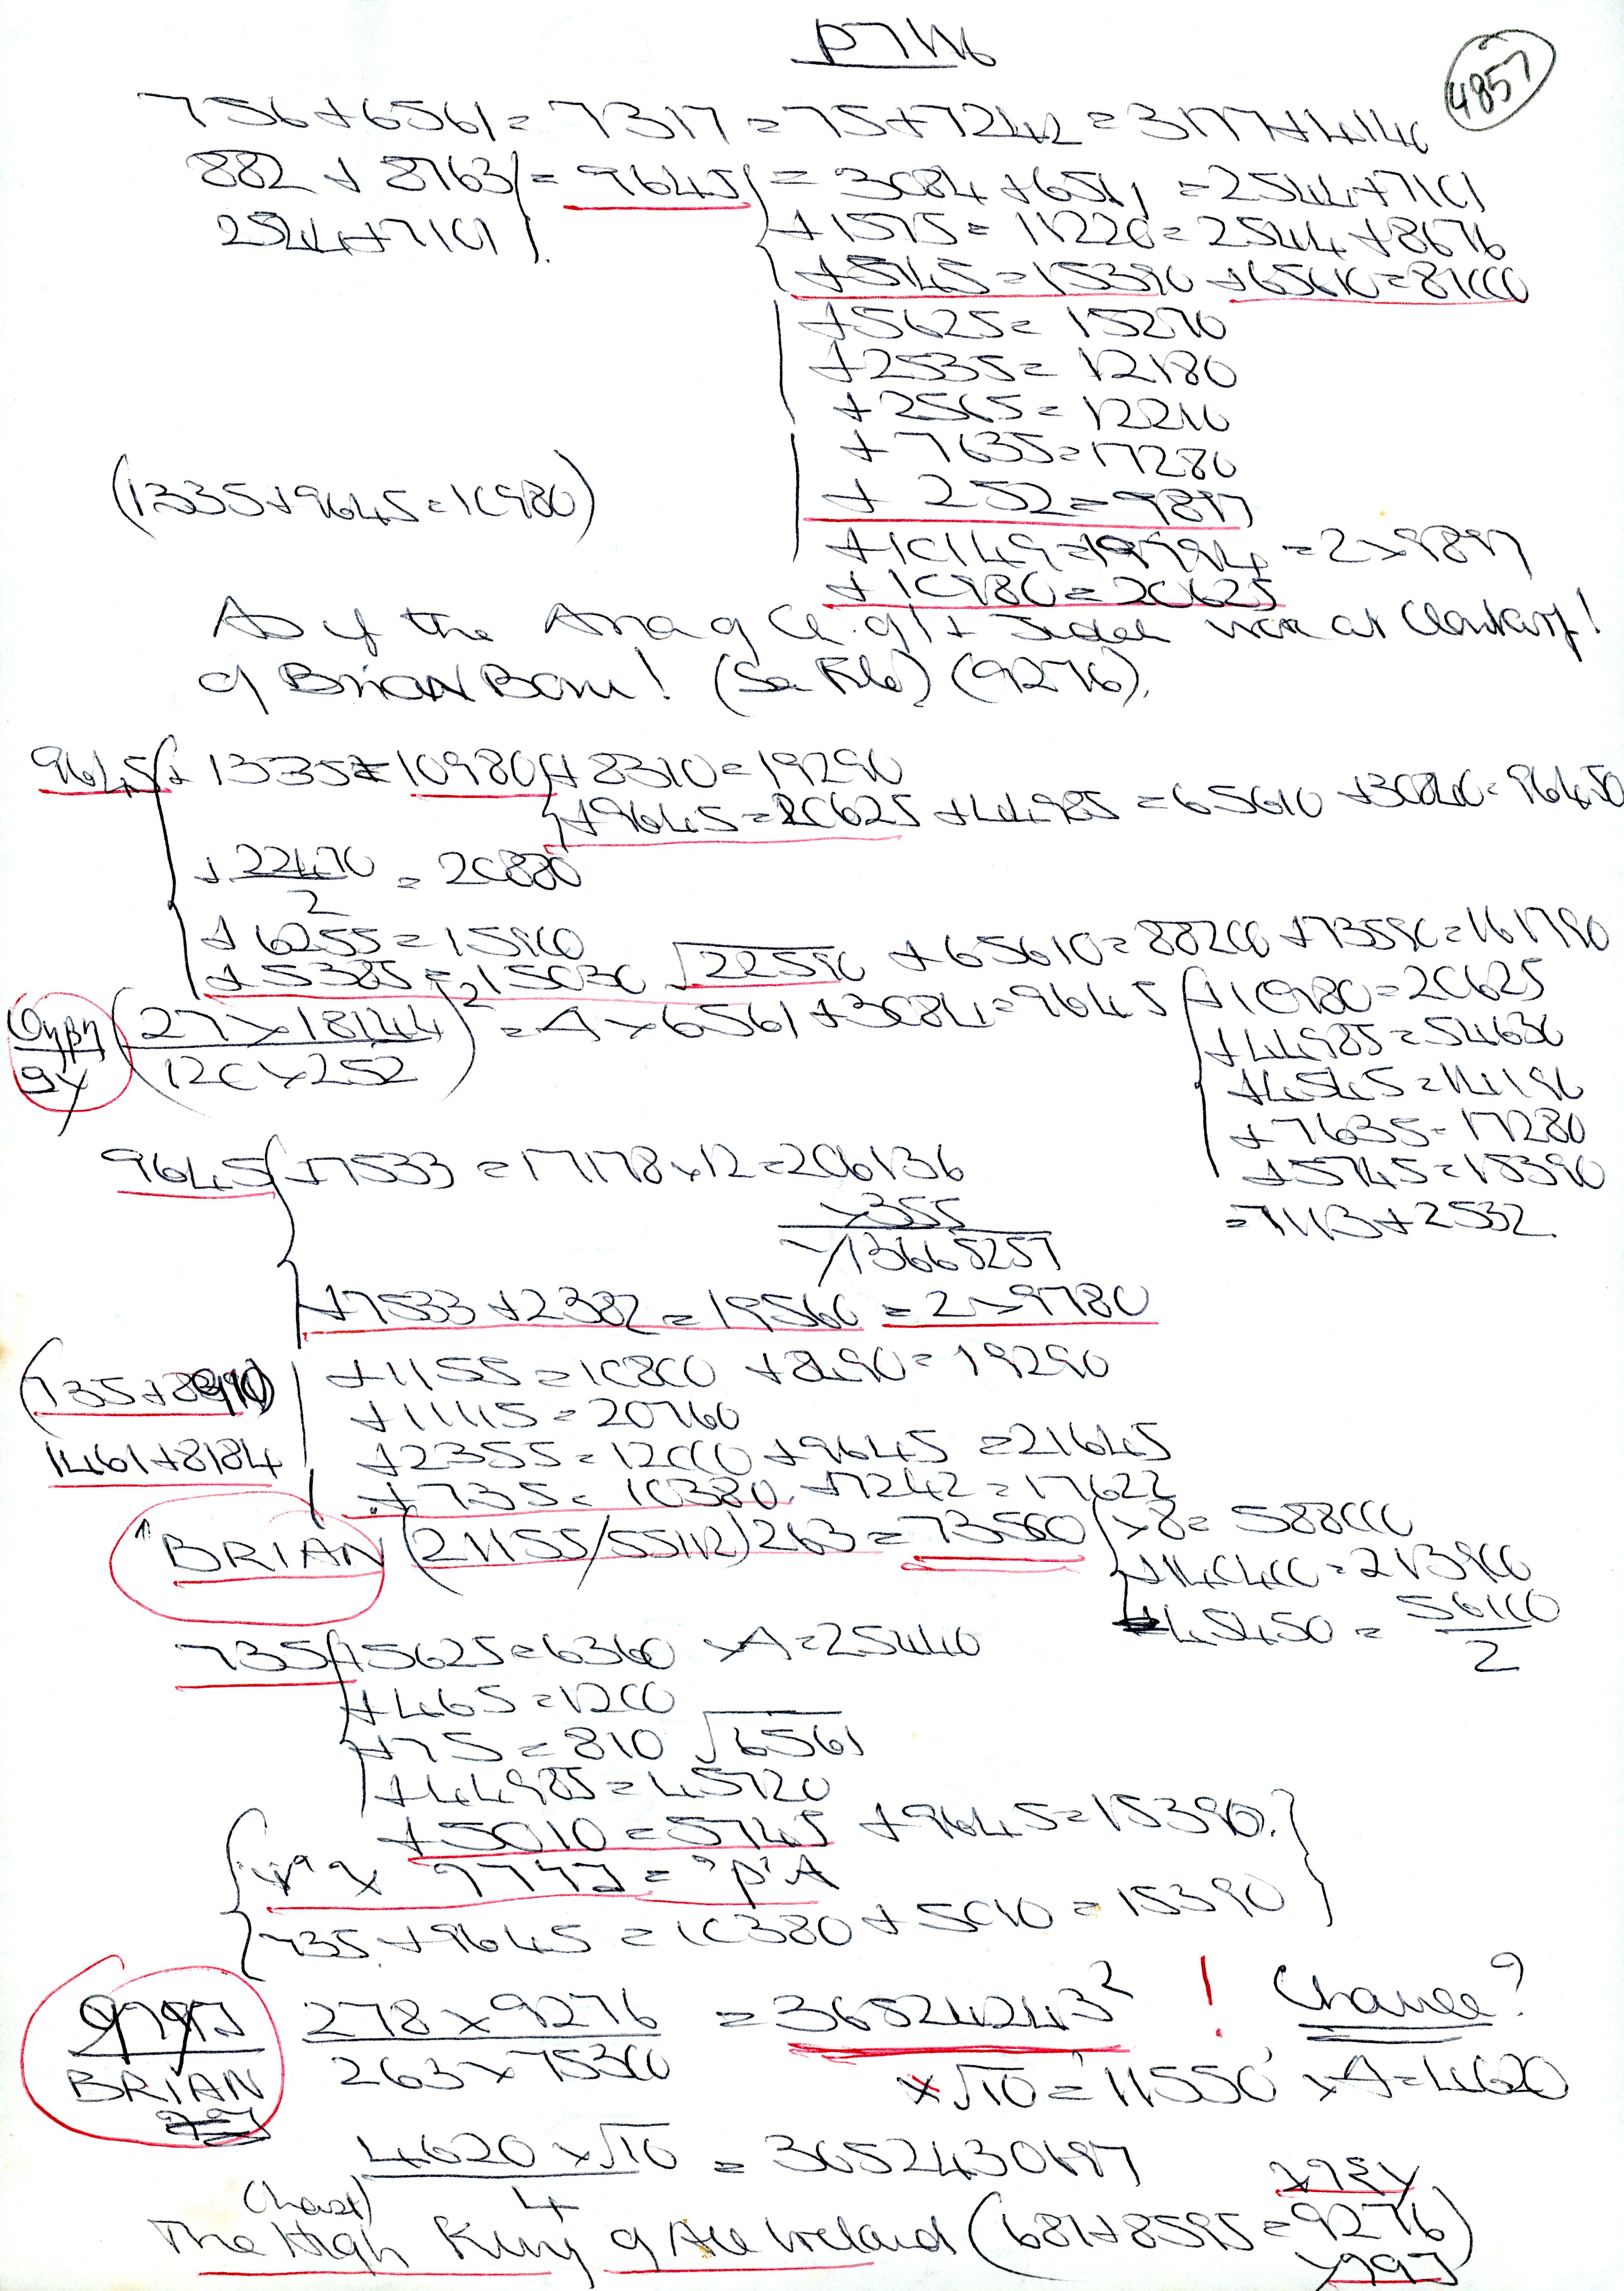 4857
756+6561=7317=75+7242=3177+4140
882 + 8763 = 9645 = 3084+6561 =2544+7101
2544+7101
+1575=11220=2544+8676
+5745=15390 +65610=81000
+5625= 15270
+2535= 12180
+2565= 12210
+7635=17280
(1335+9645=10980)
+ 252=9897
+10149=19794 =2×9897
+10980=20625
As if the
were at Clontarf!
of BRIAN Boru! (See File) (9276).
9645 + 1335=10980 +8310=19290
+9645=20625 +44985=65610 +30840=96450
+22470/2 = 20880
+6255=15900
+5385=15030 √22590 +65610=88200 +73590=161790
(27×18144/120×252)² =A×6561+3084=9645 +10980=20625
+44985=54630
+4545=14190
+7635=17280
+5745=15390
=7113+2532
9645 +7533 =17178×12=206136
×355
√13665257
+7533+2382=19560=2×9780
(735+8910) +1155=10800 +8490=19290
+11115=20760
1461+8184 +2355=12000+9645=21645
+735=10380 +7242=17622
BRIAN (21155/55112)263=73500 ×8=588000
+140400=213900
-45450 = 56100/2
735 +5625=6360 ×A=25440
+465=1200
+75=810 √6561
+44985=45720
+5010=5745 +9645=15390.
735+9645=10380+5010=15390
BRIAN 278×9276/263×75300 =36524243² ! Chance?
×√10=11550 ×A=4620
4620×√10/4 = 3652430697
The High King of All Ireland (681+8595=9276)